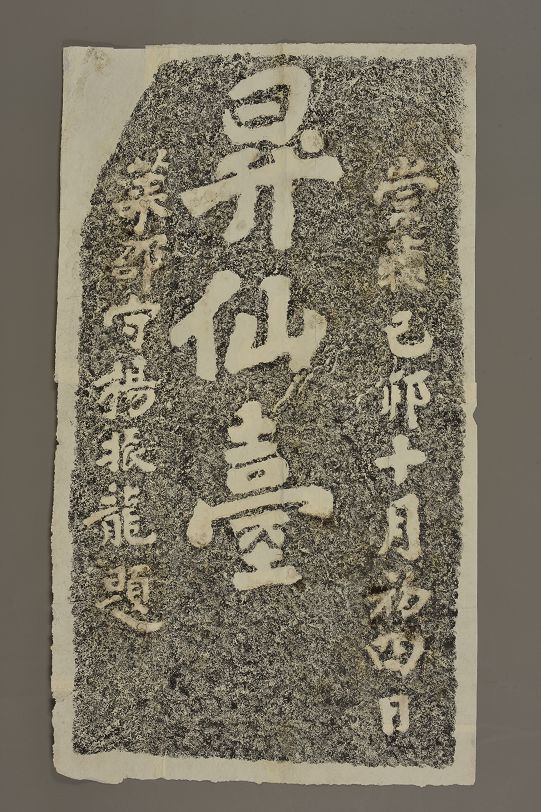 崇禎己卯十月初四日
昇仙臺
萊郡守楊振龍題